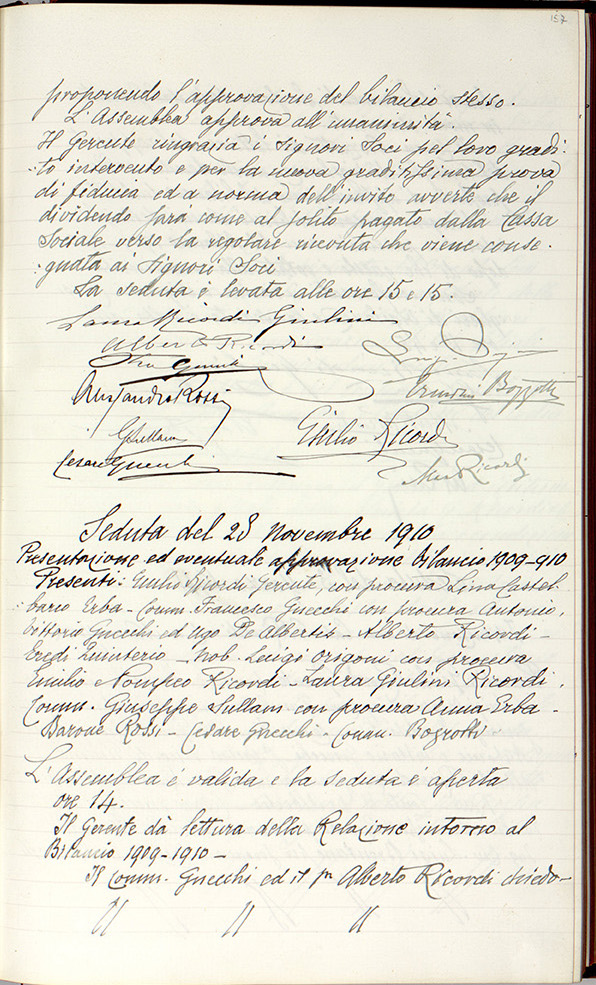 157
proponendo l'approvazione del bilancio stesso.
L'Assemblea approva all'unanimità.
Il Gerente ringrazia i Signori Soci pel loro gradi-
to intervento e per la nuova graditissima prova
di fiducia ed a norma dell'invito avverte che il
dividendo sarà come al solito pagato dalla Cassa
Sociale verso la regolare ricevuta che viene conse-
gnata ai Signori Soci
La seduta è levata alle ore 15 e 15.
Laura Ricordi Giulini
Alberto Ricordi
Alessandro Rossi
Erminio Bozzotti
GSullam
Giulio Ricordi
Cesare Gnecchi
Ricordi
Seduta del 28 Novembre 1910
Presentazione ed eventuale approvazione bilancio 1909-910
Presenti: Giulio Ricordi Gerente, con procura Lina Castel-
barco Erba - Comm. Francesco Gnecchi con procura Antonio,
Vittorio Gnecchi ed Ugo De Albertis - Alberto Ricordi -
Eredi Quinterio - Nob. Luigi Origoni con procura
Emilio Pompeo Ricordi - Laura Giulini Ricordi,
Comm. Giuseppe Sullam con procura Anna Erba -
Barone Rossi - Cesare Gnecchi - Comm. Bozzotti
L'Assemblea è valida e la seduta è aperta
ore 14.
Il Gerente dà lettura della Relazione intorno al
Bilancio 1909-1910 -
Il Comm. Gnecchi ed il Alberto Ricordi chiedo-